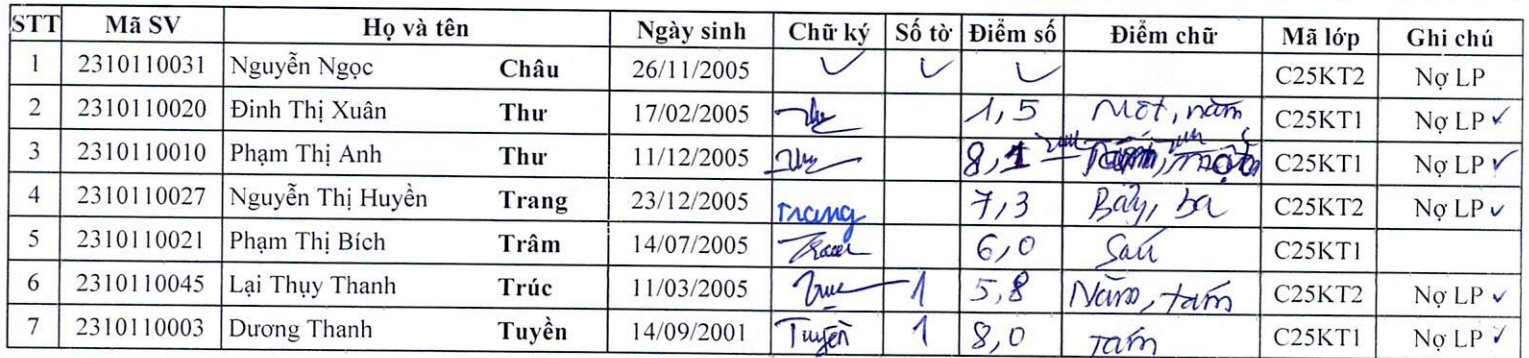 STT Mã SV Họ và tên Ngày sinh Chữ ký Số tờ Điểm số Điểm chữ Mã lớp Ghi chú
1 2310110031 Nguyễn Ngọc Châu 26/11/2005 ✓ ✓ ✓ C25KT2 Nợ LP
2 2310110020 Đinh Thị Xuân Thư 17/02/2005 Thư 1,5 Một, năm C25KT1 Nợ LP ✓
3 2310110010 Phạm Thị Anh Thư 11/12/2005 Thư 8,1 C25KT1 Nợ LP ✓
4 2310110027 Nguyễn Thị Huyền Trang 23/12/2005 Trang 7,3 Bảy, ba C25KT2 Nợ LP ✓
5 2310110021 Phạm Thị Bích Trâm 14/07/2005 6,0 Sáu C25KT1
6 2310110045 Lại Thụy Thanh Trúc 11/03/2005 Truc 1 5,8 Năm, tám C25KT2 Nợ LP ✓
7 2310110003 Dương Thanh Tuyền 14/09/2001 Tuyền 1 8,0 Tám C25KT1 Nợ LP ✓